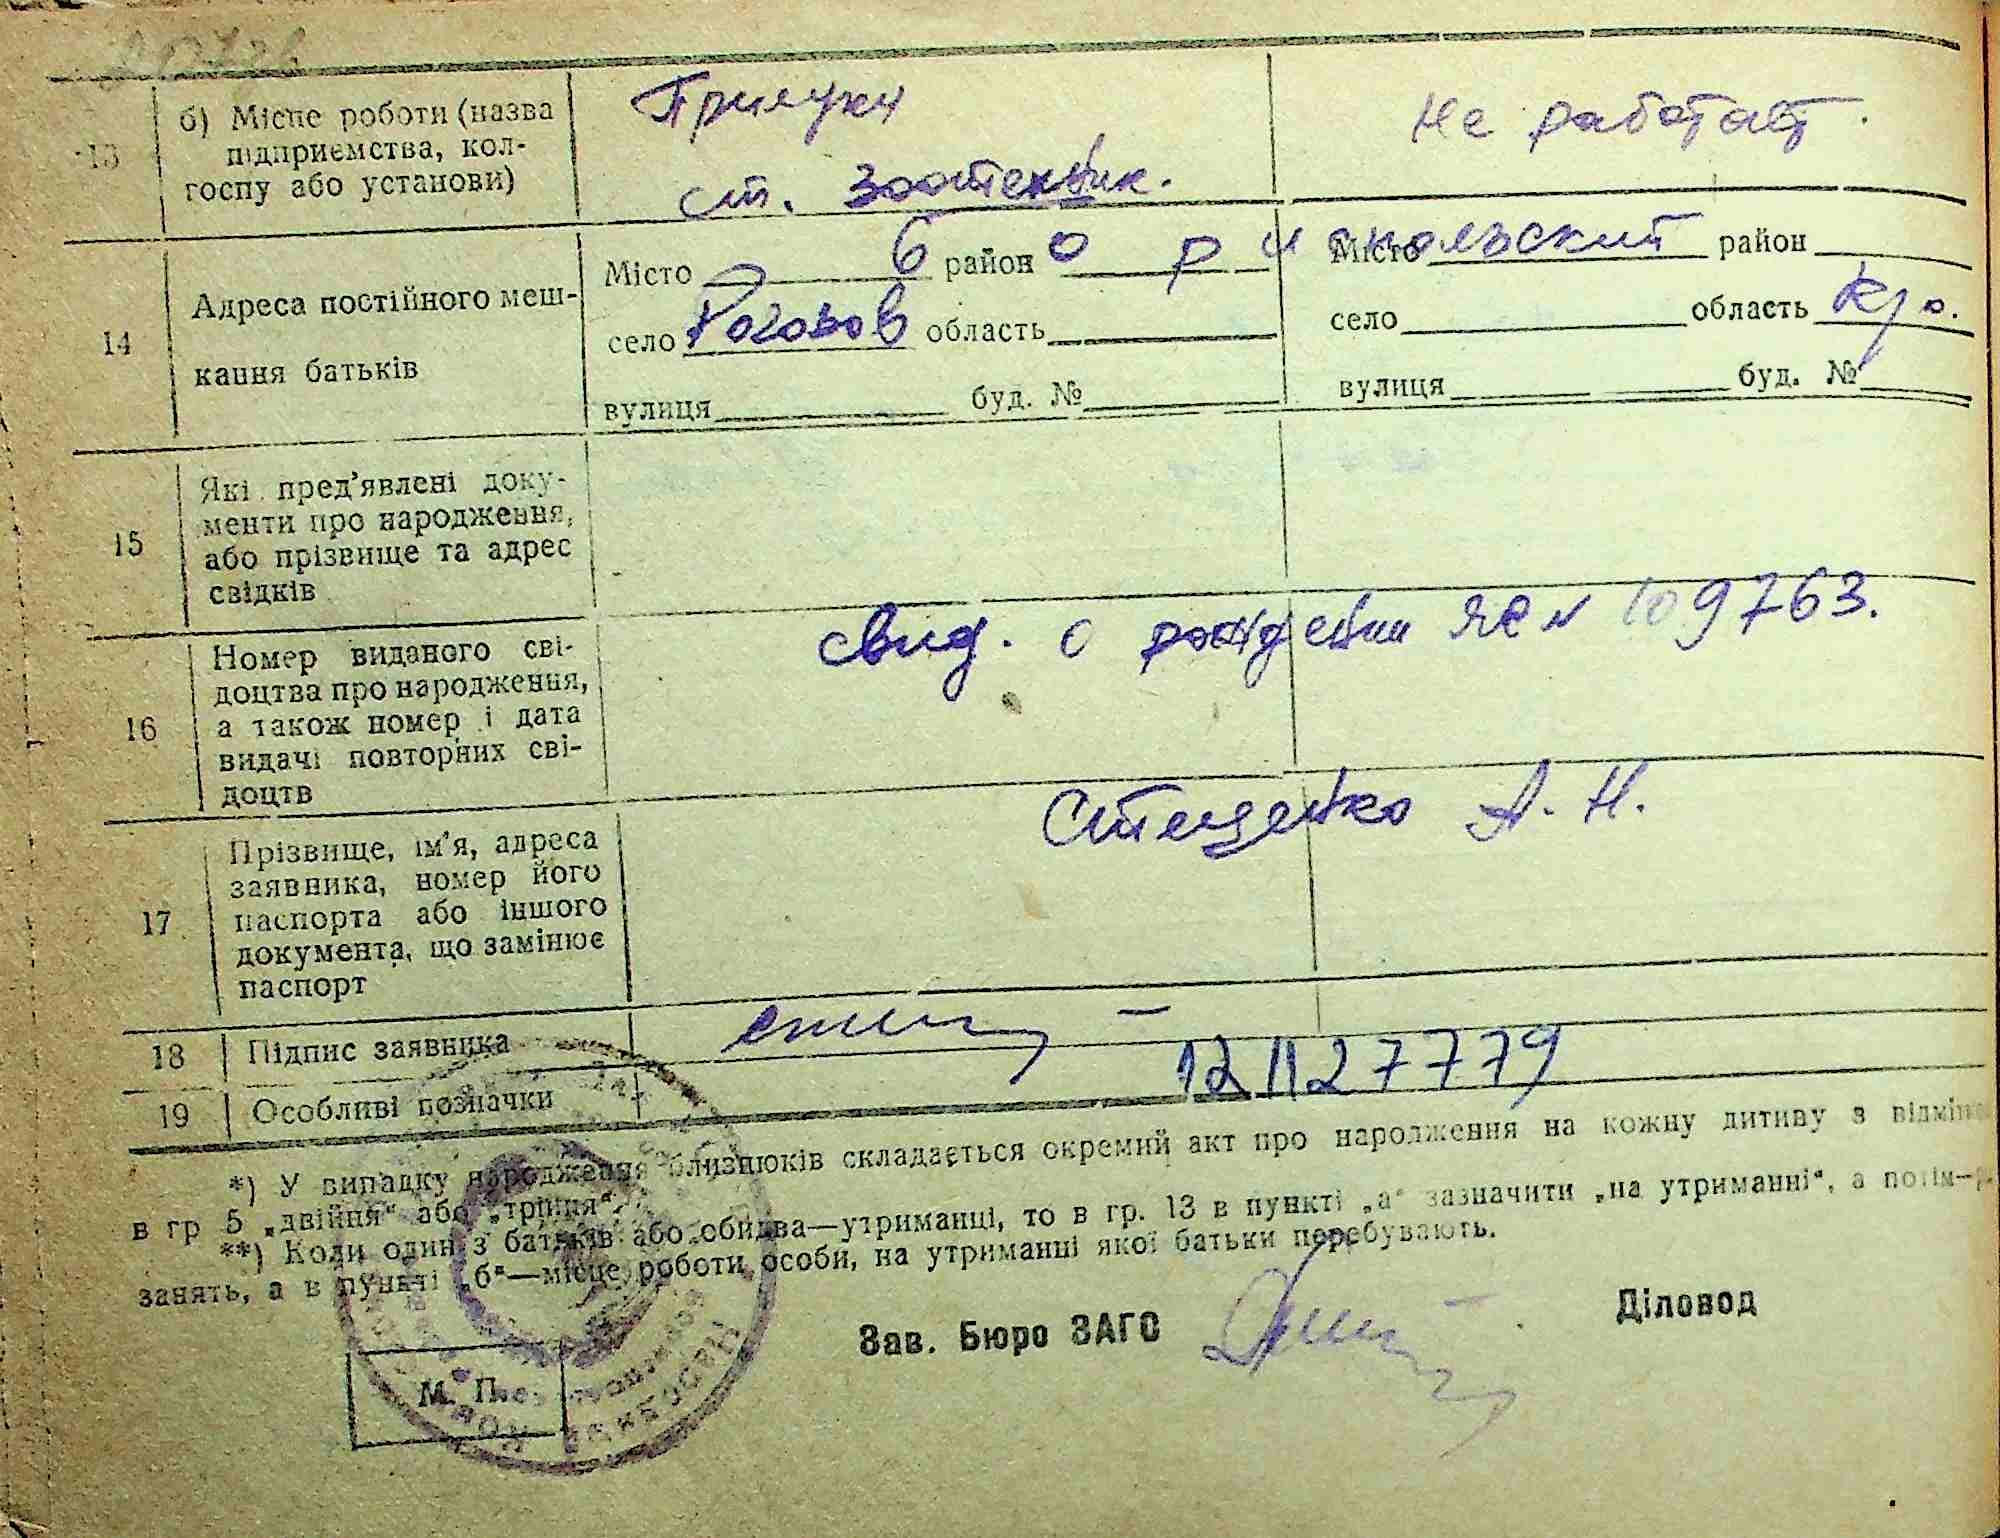 13
б) Місце роботи (назва
підприємства, кол-
госпу або установи)
Прилуки
ст. зоотехник.
Не работает.
14
Адреса постійного меш-
кання батьків
Місто район
село Рогозов область
вулиця буд. №
Місто район
Бориспольский
село область К/о.
вулиця буд. №
15
Які пред’явлені доку-
менти про народження,
або прізвище та адрес
свідків
16
Номер виданого сві-
доцтва про народження,
а також номер і дата
видачі повторних сві-
доцтв
свид. о рождении ЯЕ № 109763.
17
Прізвище, ім’я, адреса
заявника, номер його
паспорта або іншого
документа, що замінює
паспорт
Стеценко А. Н.
18 Підпис заявника
19 Особливі позначки
*) У випадку народження близнюків складається окремий акт про народження на кожну дитину з відміткою
в гр 5 „двійня“ або „трійня“.
**) Коли один з батьків або обидва—утриманці, то в гр. 13 в пункті „а“ зазначити „на утриманні“, а потім—
занять, а в пункті „б“—місце роботи особи, на утриманні якої батьки перебувають.
Зав. Бюро ЗАГС
Діловод
М. П.